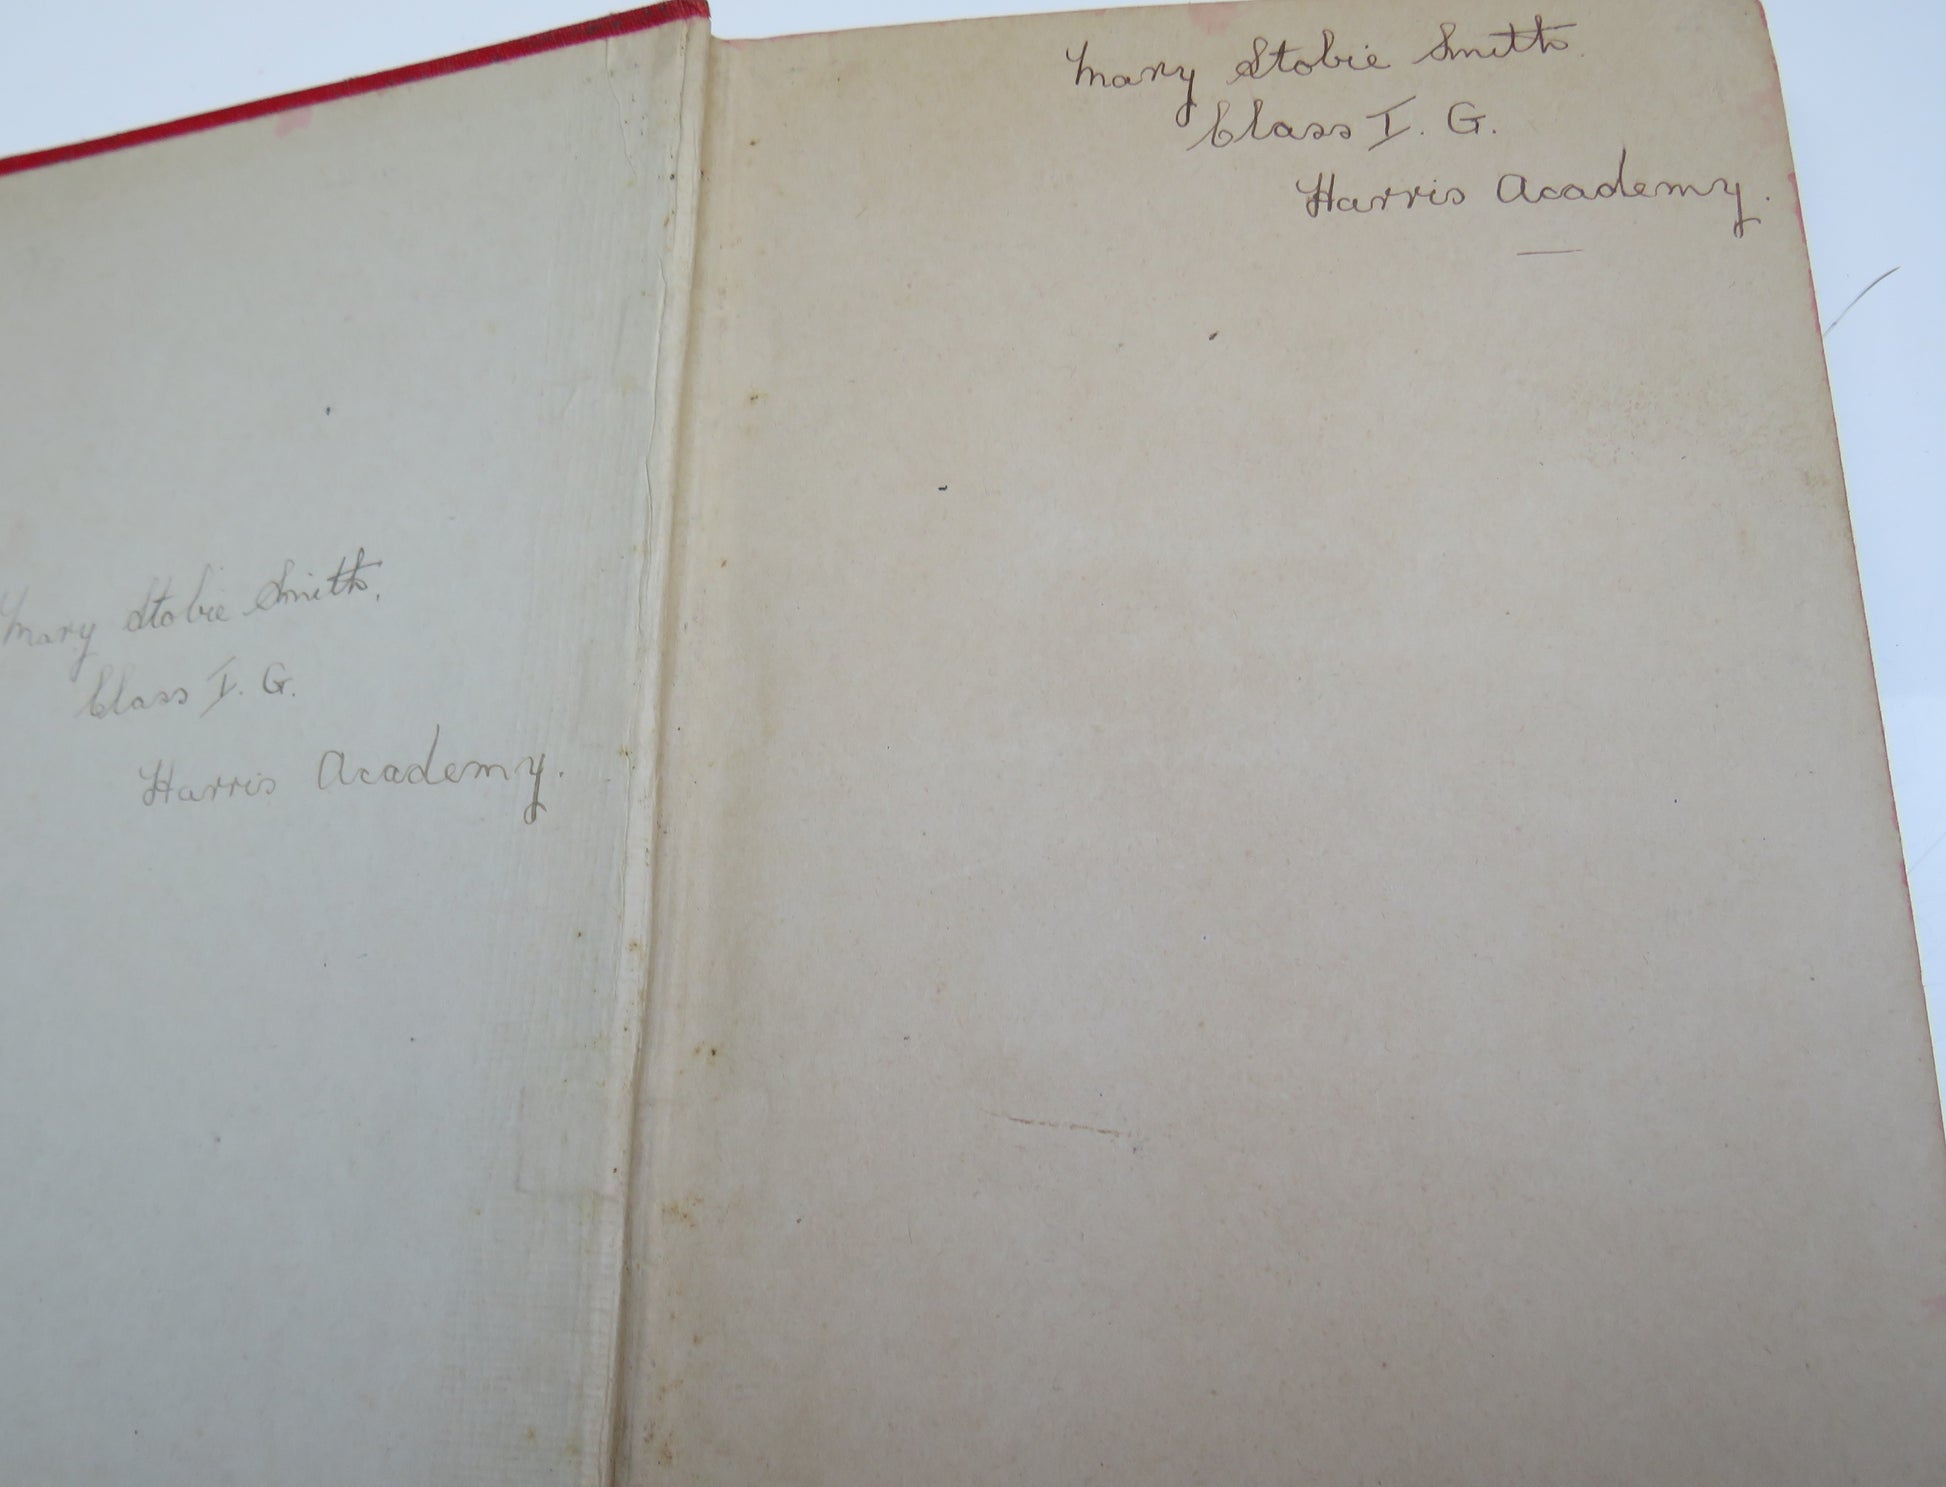 Mary Stobie Smith,
Class I. G.
Harris Academy.
Mary Stobie Smith.
Class I. G.
Harris Academy.